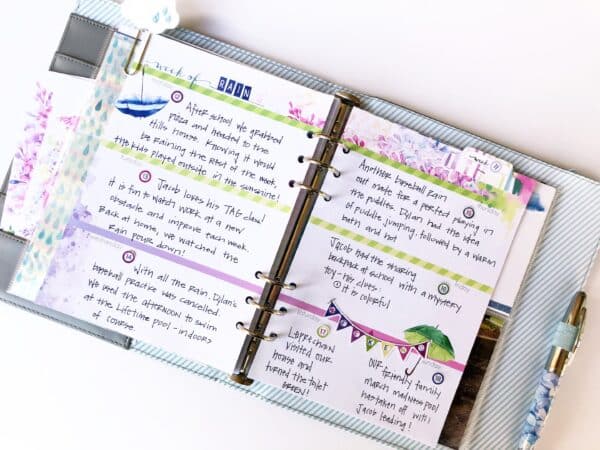 week of RAIN
12
After school we grabbed
pizza and headed to the
Hills house. Knowing it would
be raining the rest of the week,
the kids played outside in the sunshine!
tuesday
13
Jacob loves his TAG class!
it is fun to watch work at a new
obstacle and improve each week.
Back at home, we watched the
Rain pour down!
wednesday
14
With all the rain, Dylan's
baseball practice was cancelled.
We used the afternoon to swim
at the Lifetime pool - indoors
of course.
week 11
thursday
15
Another baseball rain
out made for a perfect playing in
the puddles. Dylan had the idea
of puddle jumping, followed by a warm
bath and hot
friday
16
Jacob had the sharing
backpack at school with a mystery
toy - his clues:
① it is colorful
saturday
17
Leprechaun
visited our
house and
turned the toilet
GREEN!
sunday
18
our friendly family
march madness pool
has taken off with
Jacob leading!